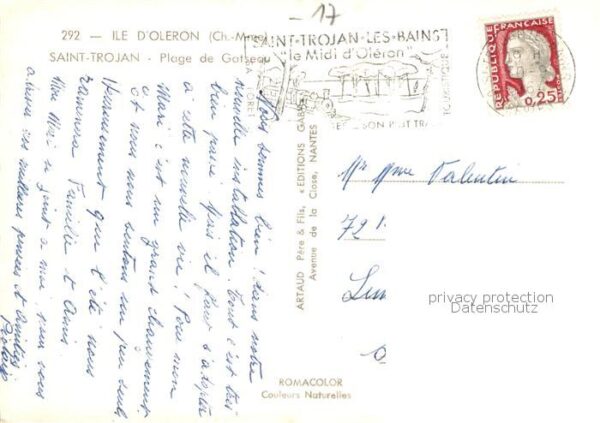 - 17
292 — ILE D'OLERON (Ch.-Mme)
SAINT-TROJAN - Plage de Gatseau
SAINT-TROJAN-LES-BAINS
"le Midi d'Oléron"
SA FORET
SON P'TIT TRA
TOURISTIQUE
REPUBLIQUE FRANÇAISE
0,25
Nous sommes bien dans notre
nouvelle installation. Tout c'est très
bien passé mais il faut s'adapter
à cette nouvelle vie ! Pour mon
Mari c'est un grand changement
et nous nous sentons un peu seuls
Heureusement que l'été nous
ramènera Famille et Amis
Mon Mari se joint à moi pour vous
adresser nos meilleures pensées et amitiés
ARTAUD Père & Fils, «EDITIONS GABY»
Avenue de la Close, NANTES
Mr Mme Valentin
72
privacy protection
Datenschutz
ROMACOLOR
Couleurs Naturelles